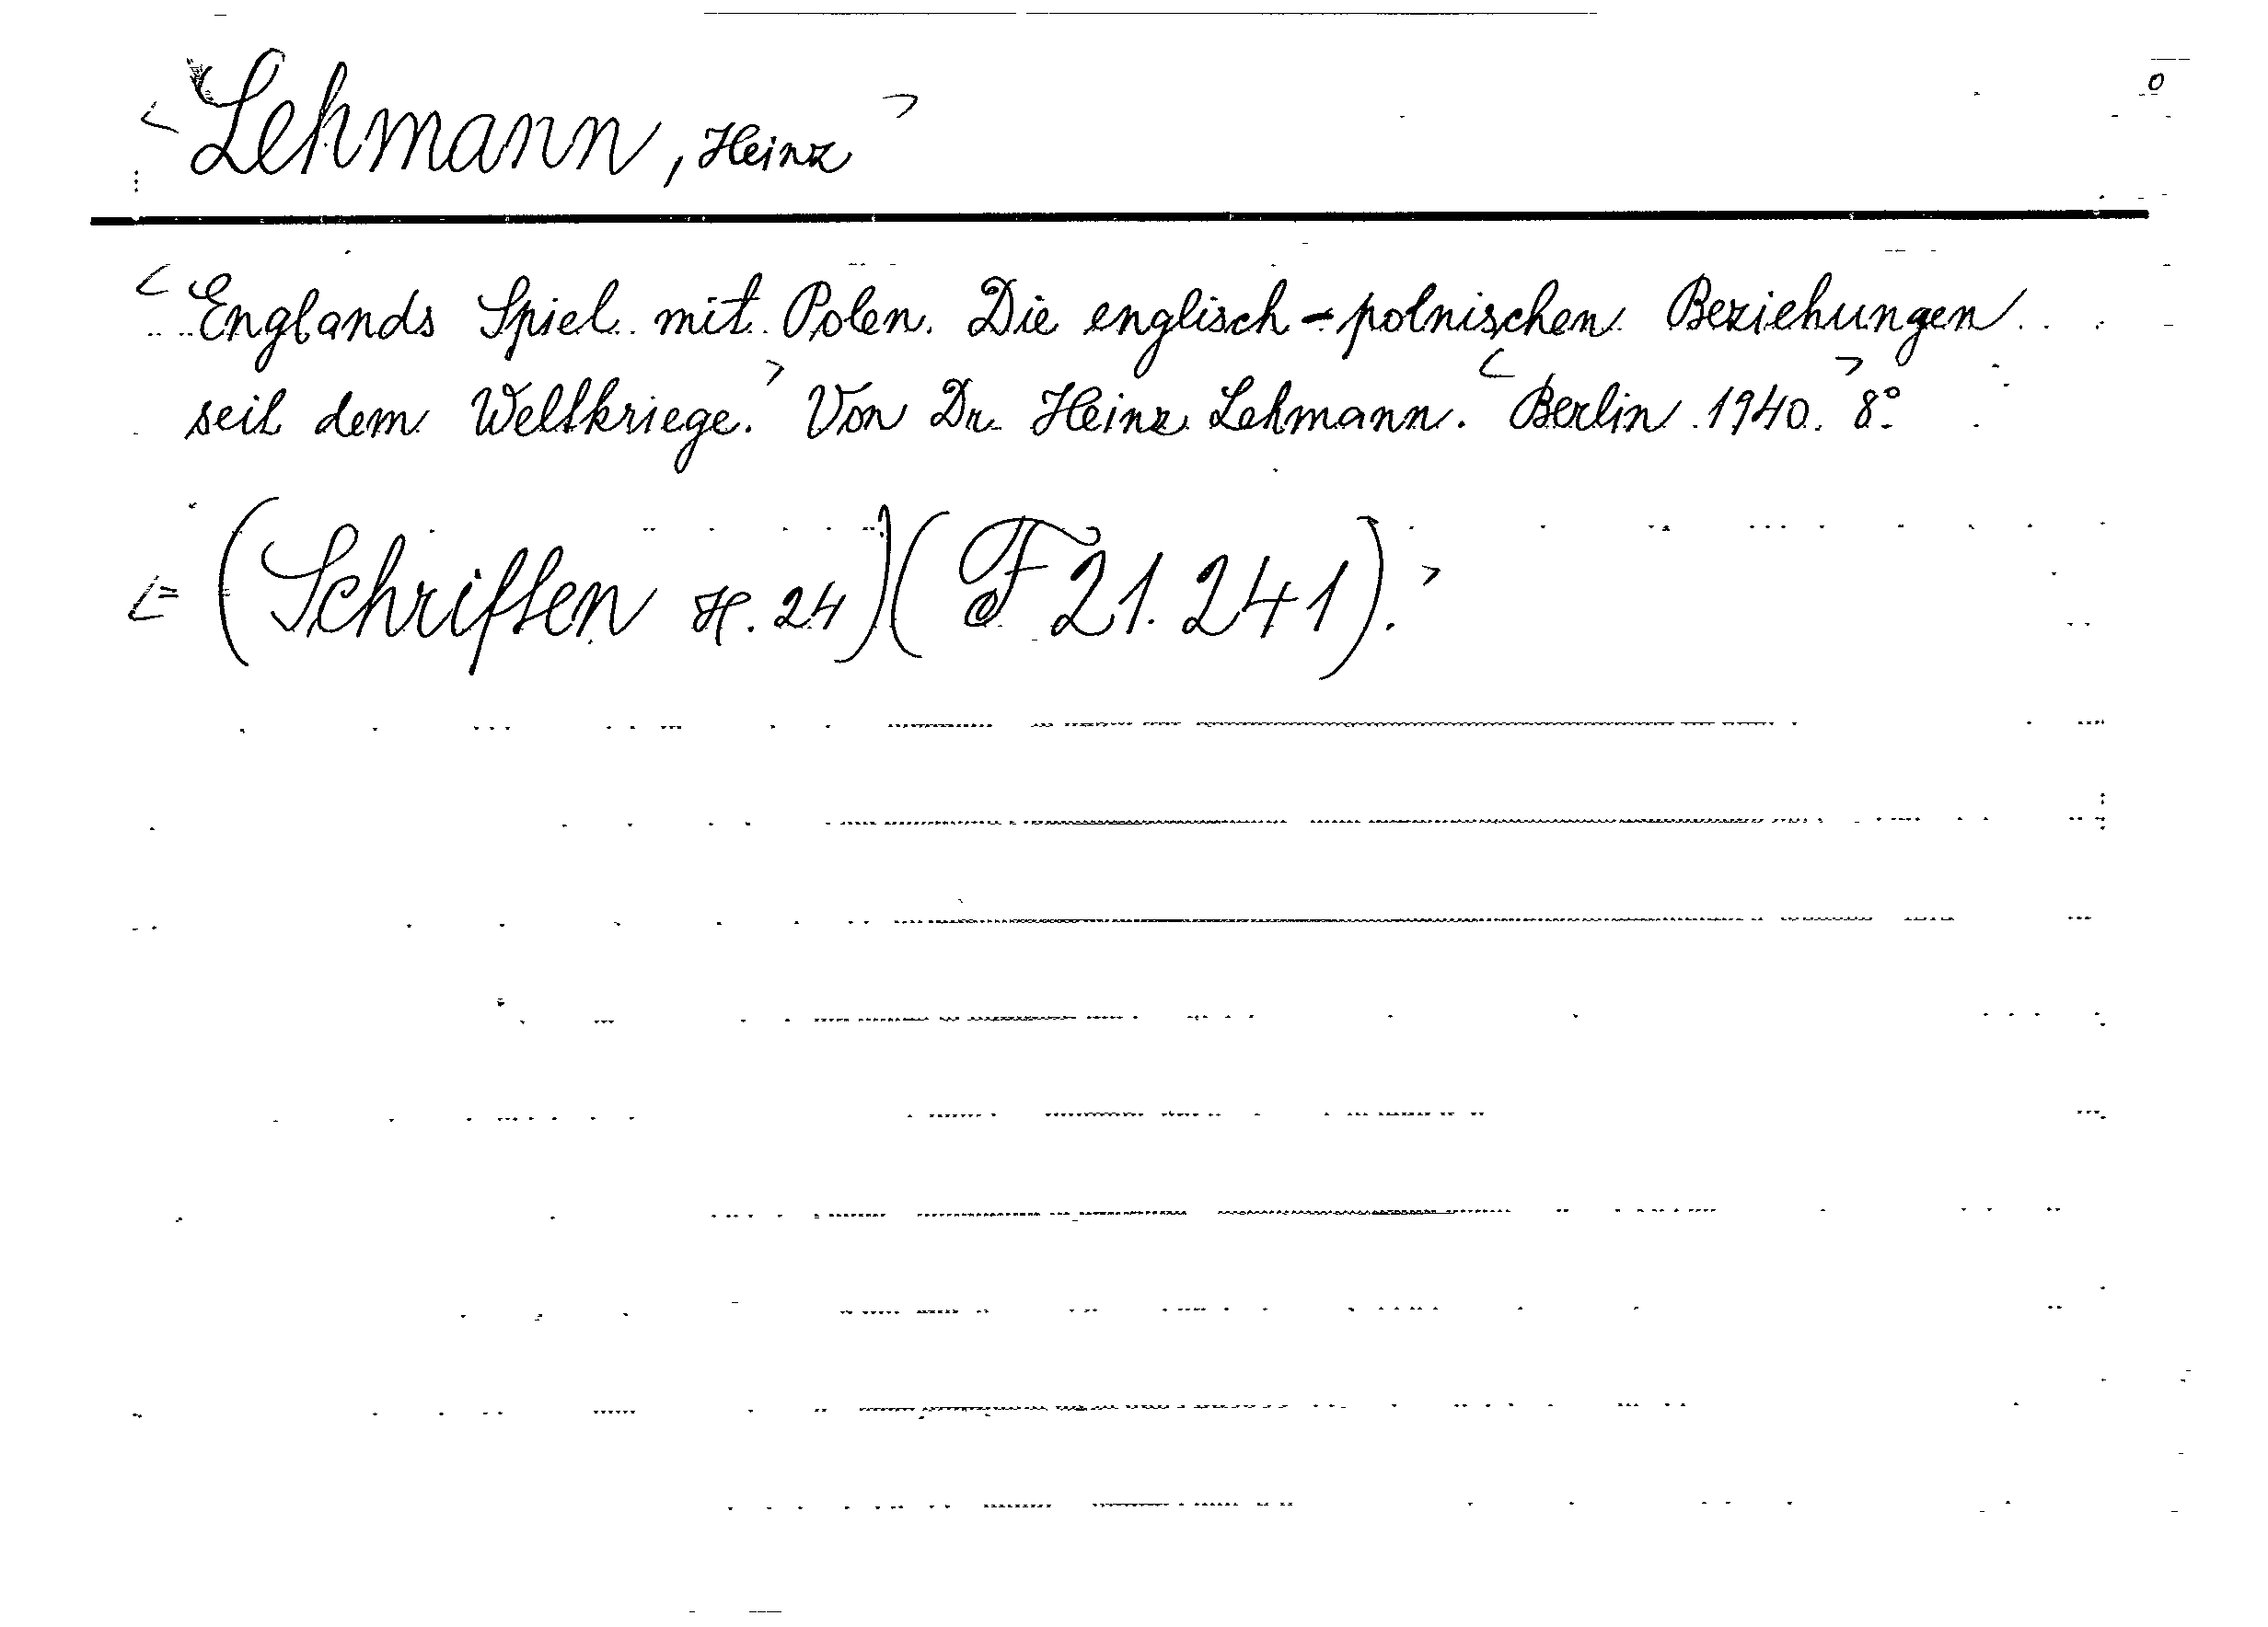 < Lehmann, Heinz >
< Englands Spiel mit Polen. Die englisch-polnischen Beziehungen
seit dem Weltkriege. > Von Dr. Heinz Lehmann. < Berlin 1940. > 8°.
<= (Schriften H. 24) (F 21. 241). >